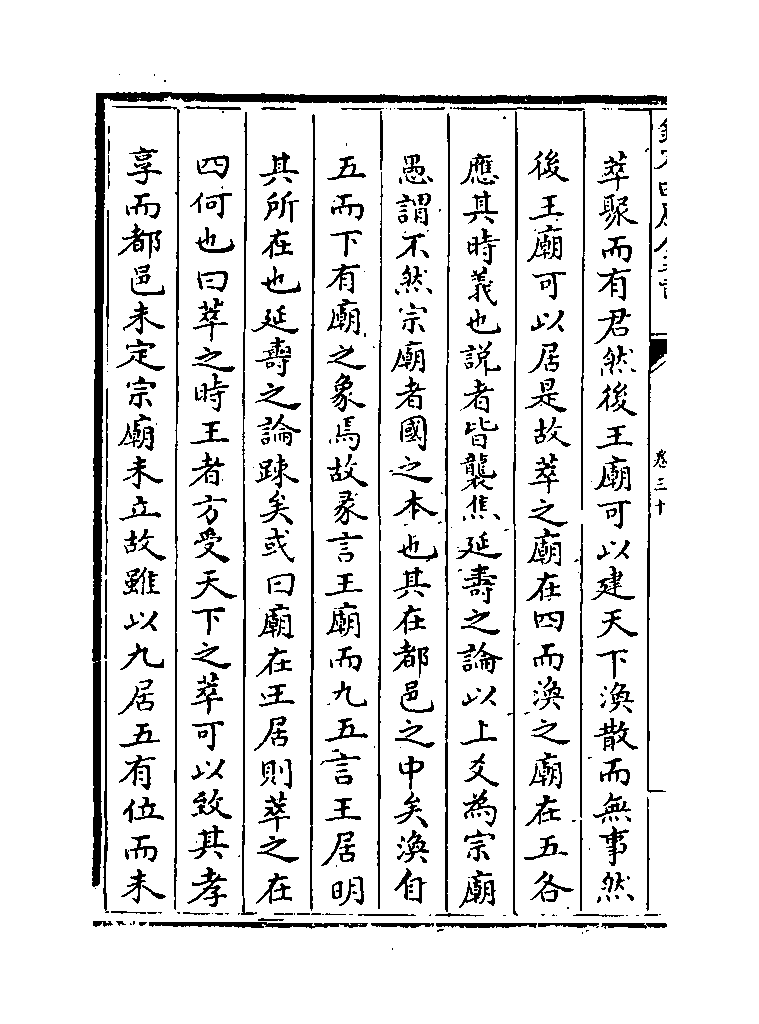 萃聚而有君然後王廟可以建天下渙散而無事然
後王廟可以居是故萃之廟在四而渙之廟在五各
應其時義也説者皆襲焦延壽之論以上爻為宗廟
愚謂不然宗廟者國之本也其在都邑之中矣渙自
五而下有廟之象焉故彖言王廟而九五言王居明
其所在也延壽之論踈矣或曰廟在王居則萃之在
四何也曰萃之時王者方受天下之萃可以致其孝
享而都邑未定宗廟未立故雖以九居五有位而未
卷三十